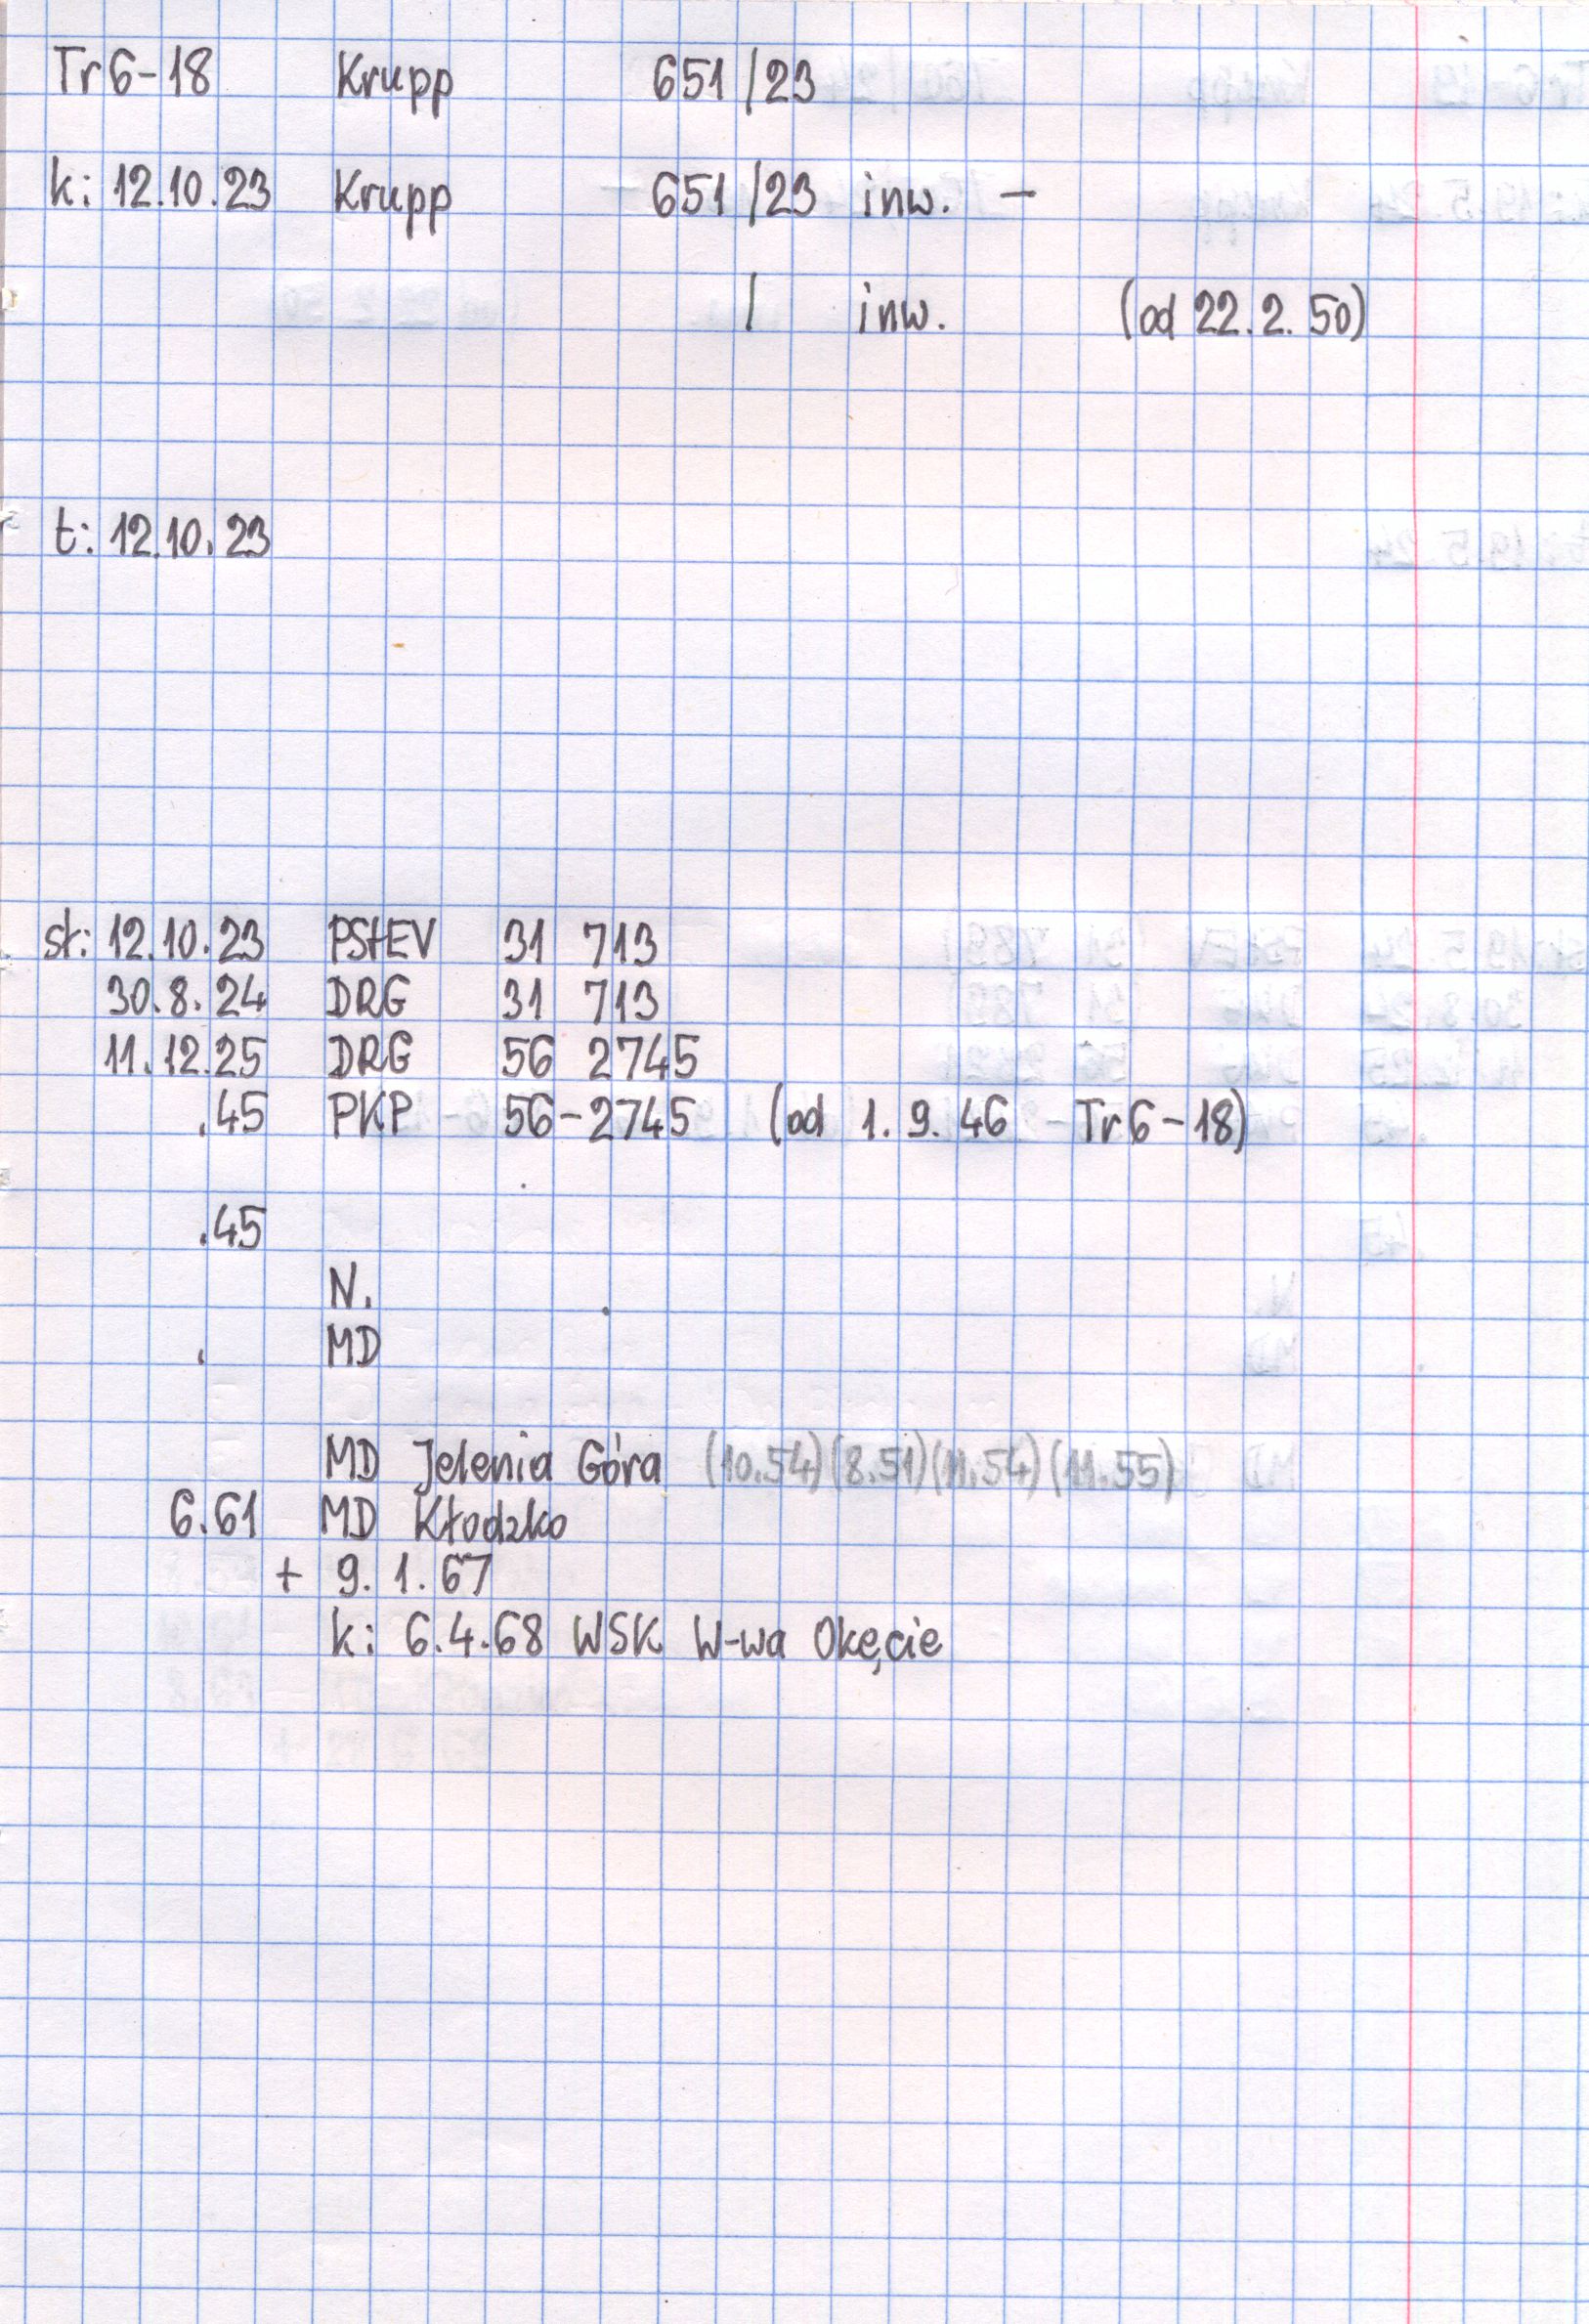 Tr6-18 Krupp 651/23
k: 12.10.23 Krupp 651/23 inw. -
/ inw. (od 22.2.50)
t: 12.10.23
st: 12.10.23 PStEV 31 713
30.8.24 DRG 31 713
11.12.25 DRG 56 2745
.45 PKP 56-2745 (od 1.9.46 - Tr6-18)
.45
N. .
. MD
MD Jelenia Góra (10.54)(8.51)(11.54)(11.55)
6.61 MD Kłodzko
+ 9.1.67
k: 6.4.68 WSK W-wa Okęcie